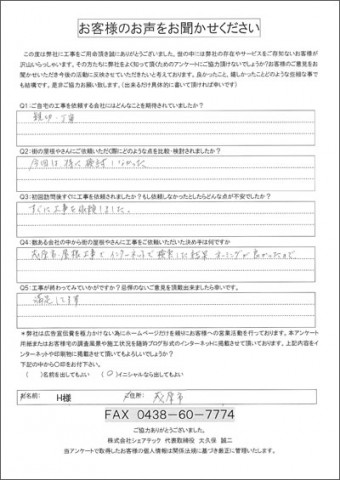 お客様のお声をお聞かせください
この度は弊社に工事をご用命頂き誠にありがとうございました。世の中には弊社の存在やサービスをご存知ないお客様が
沢山いらっしゃいます。その方たちも弊社をよく知って頂くためのアンケートにご協力頂けないでしょうか？お客様のご意見をお
聞かせいただき今後の活動に反映させていただきたいと考えております。良かったこと、嬉しかったことどのような些細な事で
も結構です。是非ご協力お願い致します。（出来るだけ具体的に書いて頂ければ幸いです）
Q1：ご自宅の工事を依頼する会社にはどんなことを期待されていましたか？
親切・丁寧
Q2：街の屋根やさんにご依頼いただく際にどのような点を比較・検討されましたか？
今回は特に検討しなかった
Q3：初回訪問後すぐに工事を依頼されましたか？もし依頼しなかったとしたらどんな点が不安でしたか？
すぐに工事を依頼しました。
Q4：数ある会社の中から街の屋根やさんに工事をご依頼いただいた決め手は何ですか
茂原市・屋根工事でインターネットで検索した結果 タイミングが良かったので
Q5：工事が終わってみていかがですか？忌憚のないご意見を頂戴出来ましたら幸いです。
満足してます
＊弊社は広告宣伝費を極力かけない為にホームページだけを頼りにお客様への営業活動を行っております。本アンケート
用紙またはお客様宅の調査風景や施工状況を随時ブログ形式のインターネットに掲載させて頂いております。上記内容をイ
ンターネットや印刷物に掲載させて頂いてもよろしいでしょうか？
下記の中から〇印をお付け下さい。
（ ）名前を出してもよい （〇）イニシャルなら出してもよい
お名前： H様 ご住所： 茂原市
FAX 0438-60-7774
ご協力ありがとうございました。
株式会社シェアテック 代表取締役 大久保 誠二
当アンケートで取得したお客様の個人情報は関係法規に基づき厳正に管理いたします。